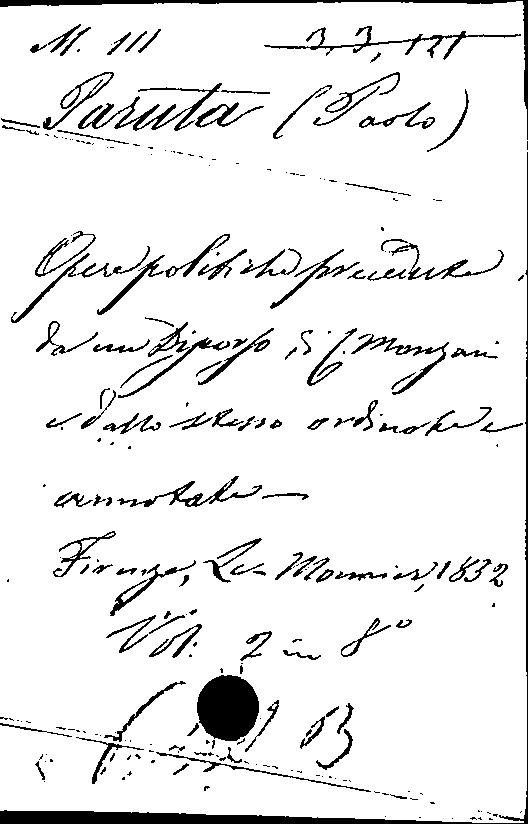 M. 111 3, 3, 121
Paruta (Paolo)
Opere politiche precedute
da un Discorso di C. Monzani
e dallo stesso ordinate e
annotate —
Firenze, Le Monnier, 1832
Vol: 2 in 8°
B